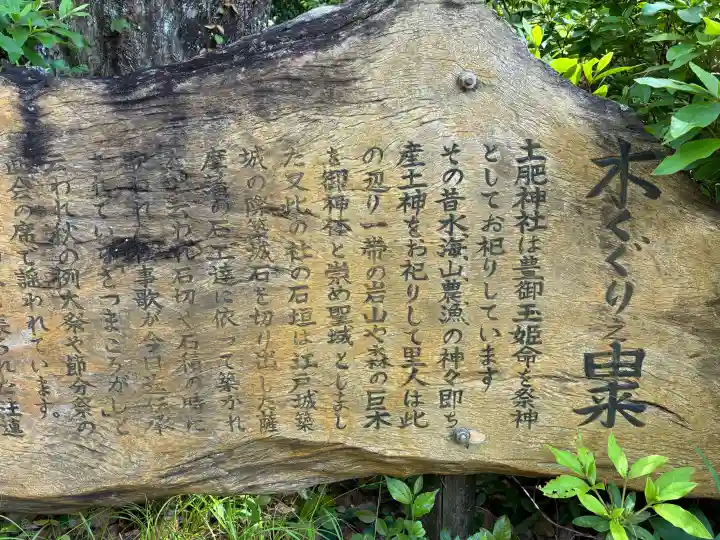 木くぐりえ由来
土肥神社は豊御玉姫命を祭神
としてお祀りしています
その昔水海山農漁の神々即ち
産土神をお祀りして里人は此
の辺り一帯の岩山や森の巨木
を御神体と崇め聖域としまし
た又此の社の石垣は江戸城築
城の際築城石を切り出した薩
摩藩の石工達に依って築かれ
石切や石積の時に
事歌が今日
されている さつまころがし と
云われ秋の例大祭や節分祭の
直会の席で謡われています。